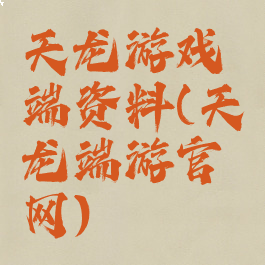 天龙游戏
端资料(天
龙端游官
网)